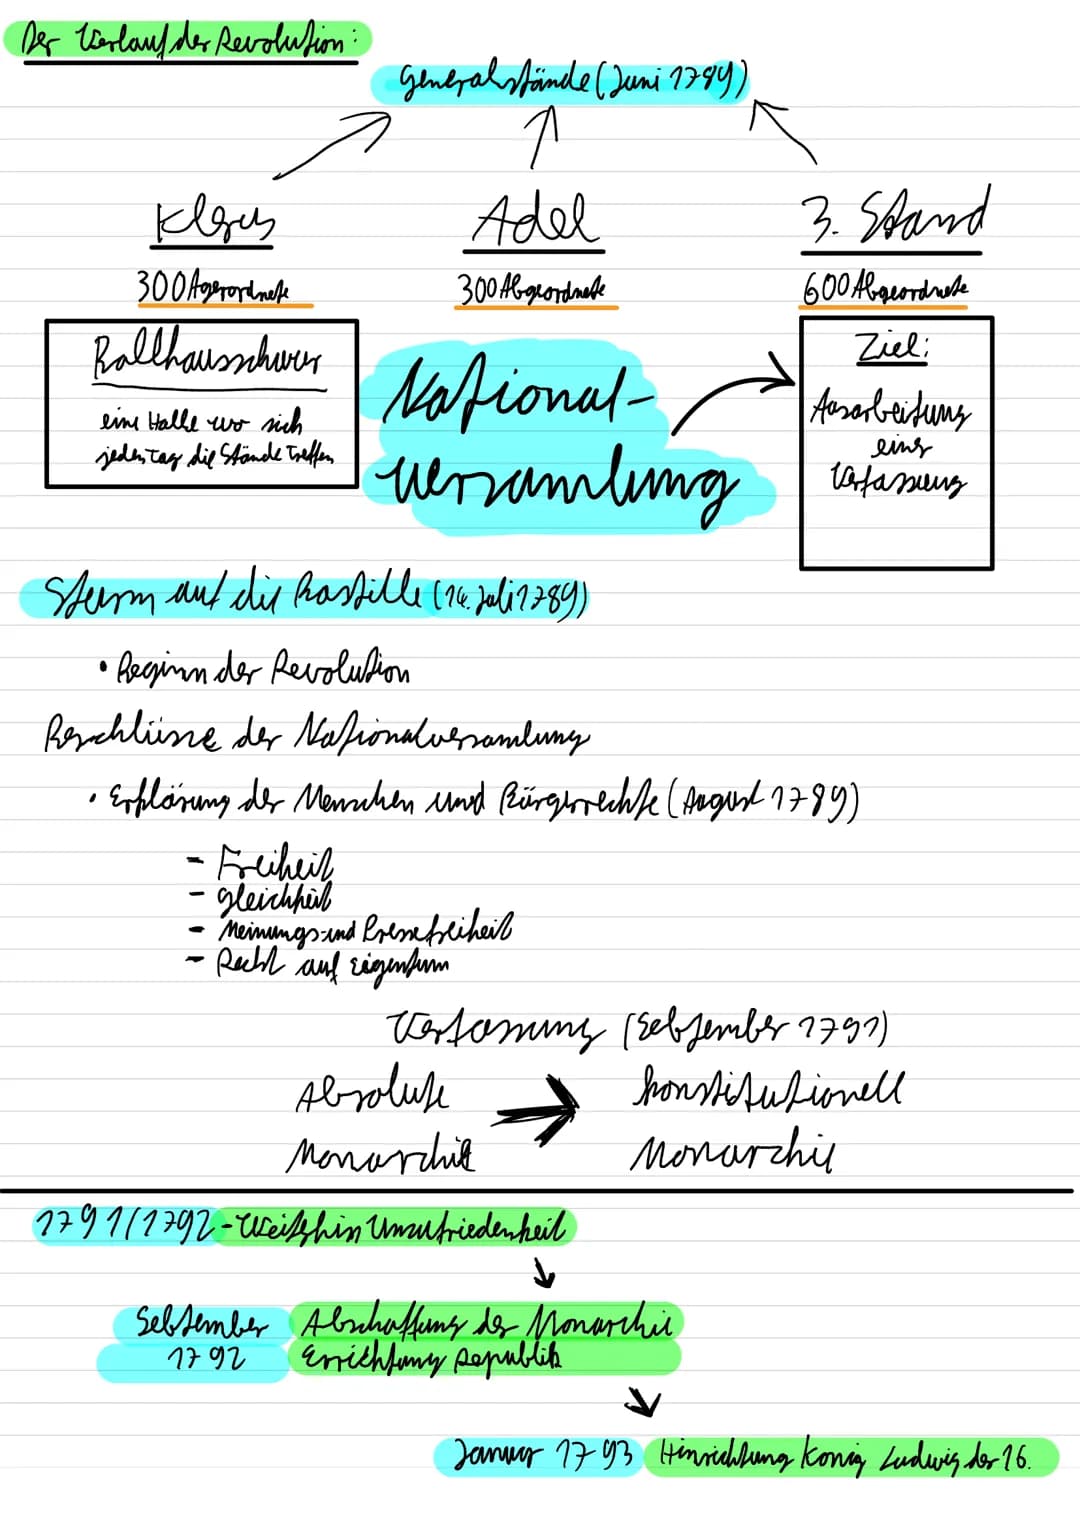 Der Verlauf der Revolution:
Generalstände (Juni 1789)
Klerus
Adel
3. Stand
300 Agerordnete
300 Abgeordnete
600 Abgeordnete
Ballhausschwur
eine Halle wo sich
jeden Tag die Stände treffen
National-
versamlung
Ziel:
Ausarbeitung
einer
Verfassung
Sturm auf die Bastille (14. Juli 1789)
• Beginn der Revolution
Beschlüsse der Nationalversamlung
• Erklärung der Menschen und Bürgerrechte (August 1789)
- Freiheit
- gleichheit
- Meinungs-und Pressefreiheit
- Recht auf Eigentum
Verfassung (Sebtember 1791)
Absolute
konstitutionell
Monarchie
Monarchie
1791/1792 - Weiterhin Unzufriedenheit
Sebtember
Abschaffung der Monarchie
1792
Errichtung Republik
Januar 1793 Hinrichtung König Ludwig der 16.